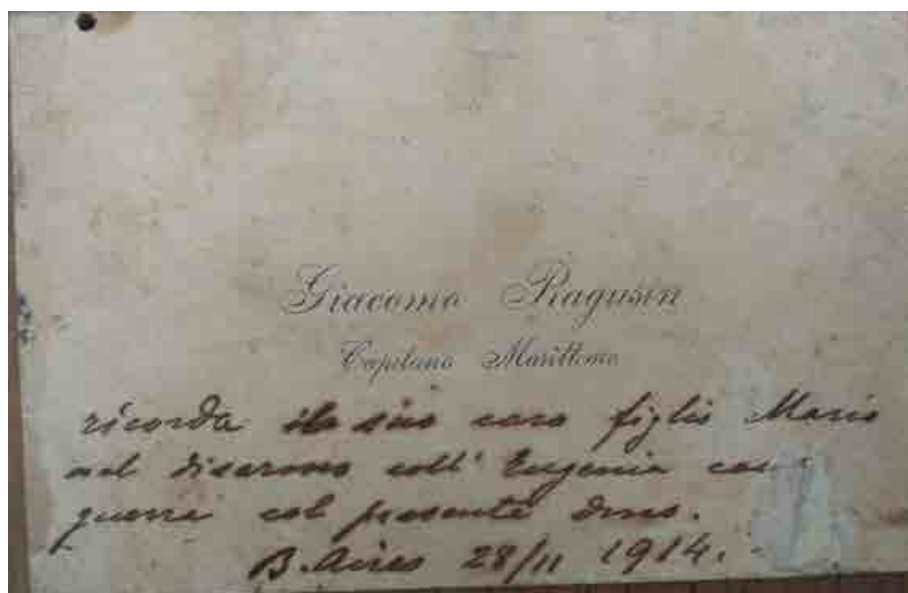 Giacomo Ragusin
Capitano Marittimo
ricorda il suo caro figlio Mario
nel disarmo coll' Eugenia
guerra col presente dono.
B. Aires 28/11 1914.